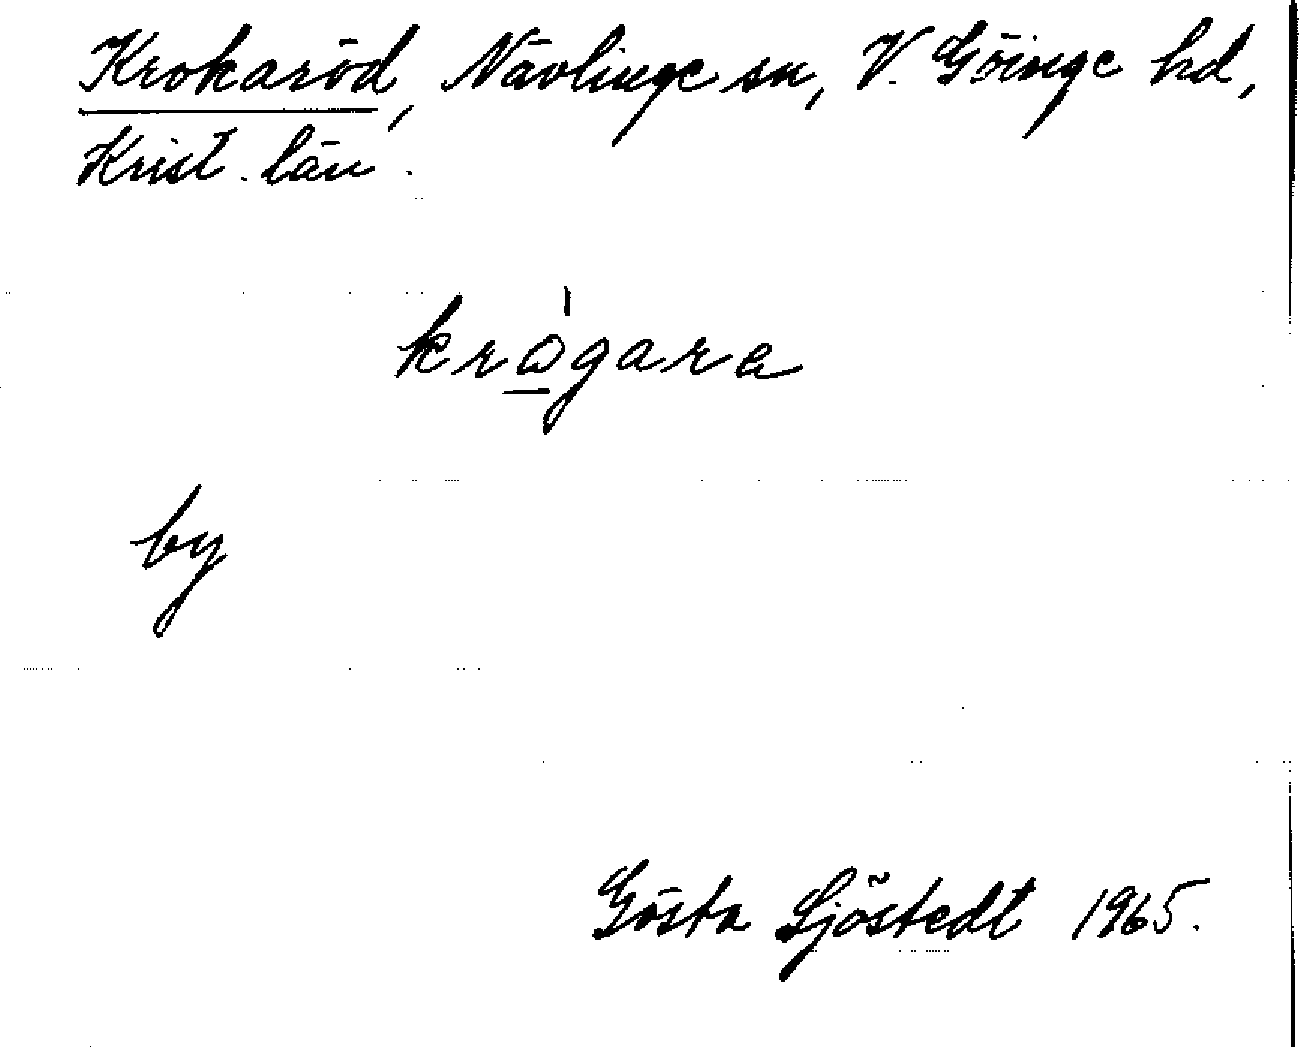 Krokaröd, Nävlinge sn, V. Göinge hd,
Krist. län.
krò̱gara
by
Gösta Sjöstedt 1965.